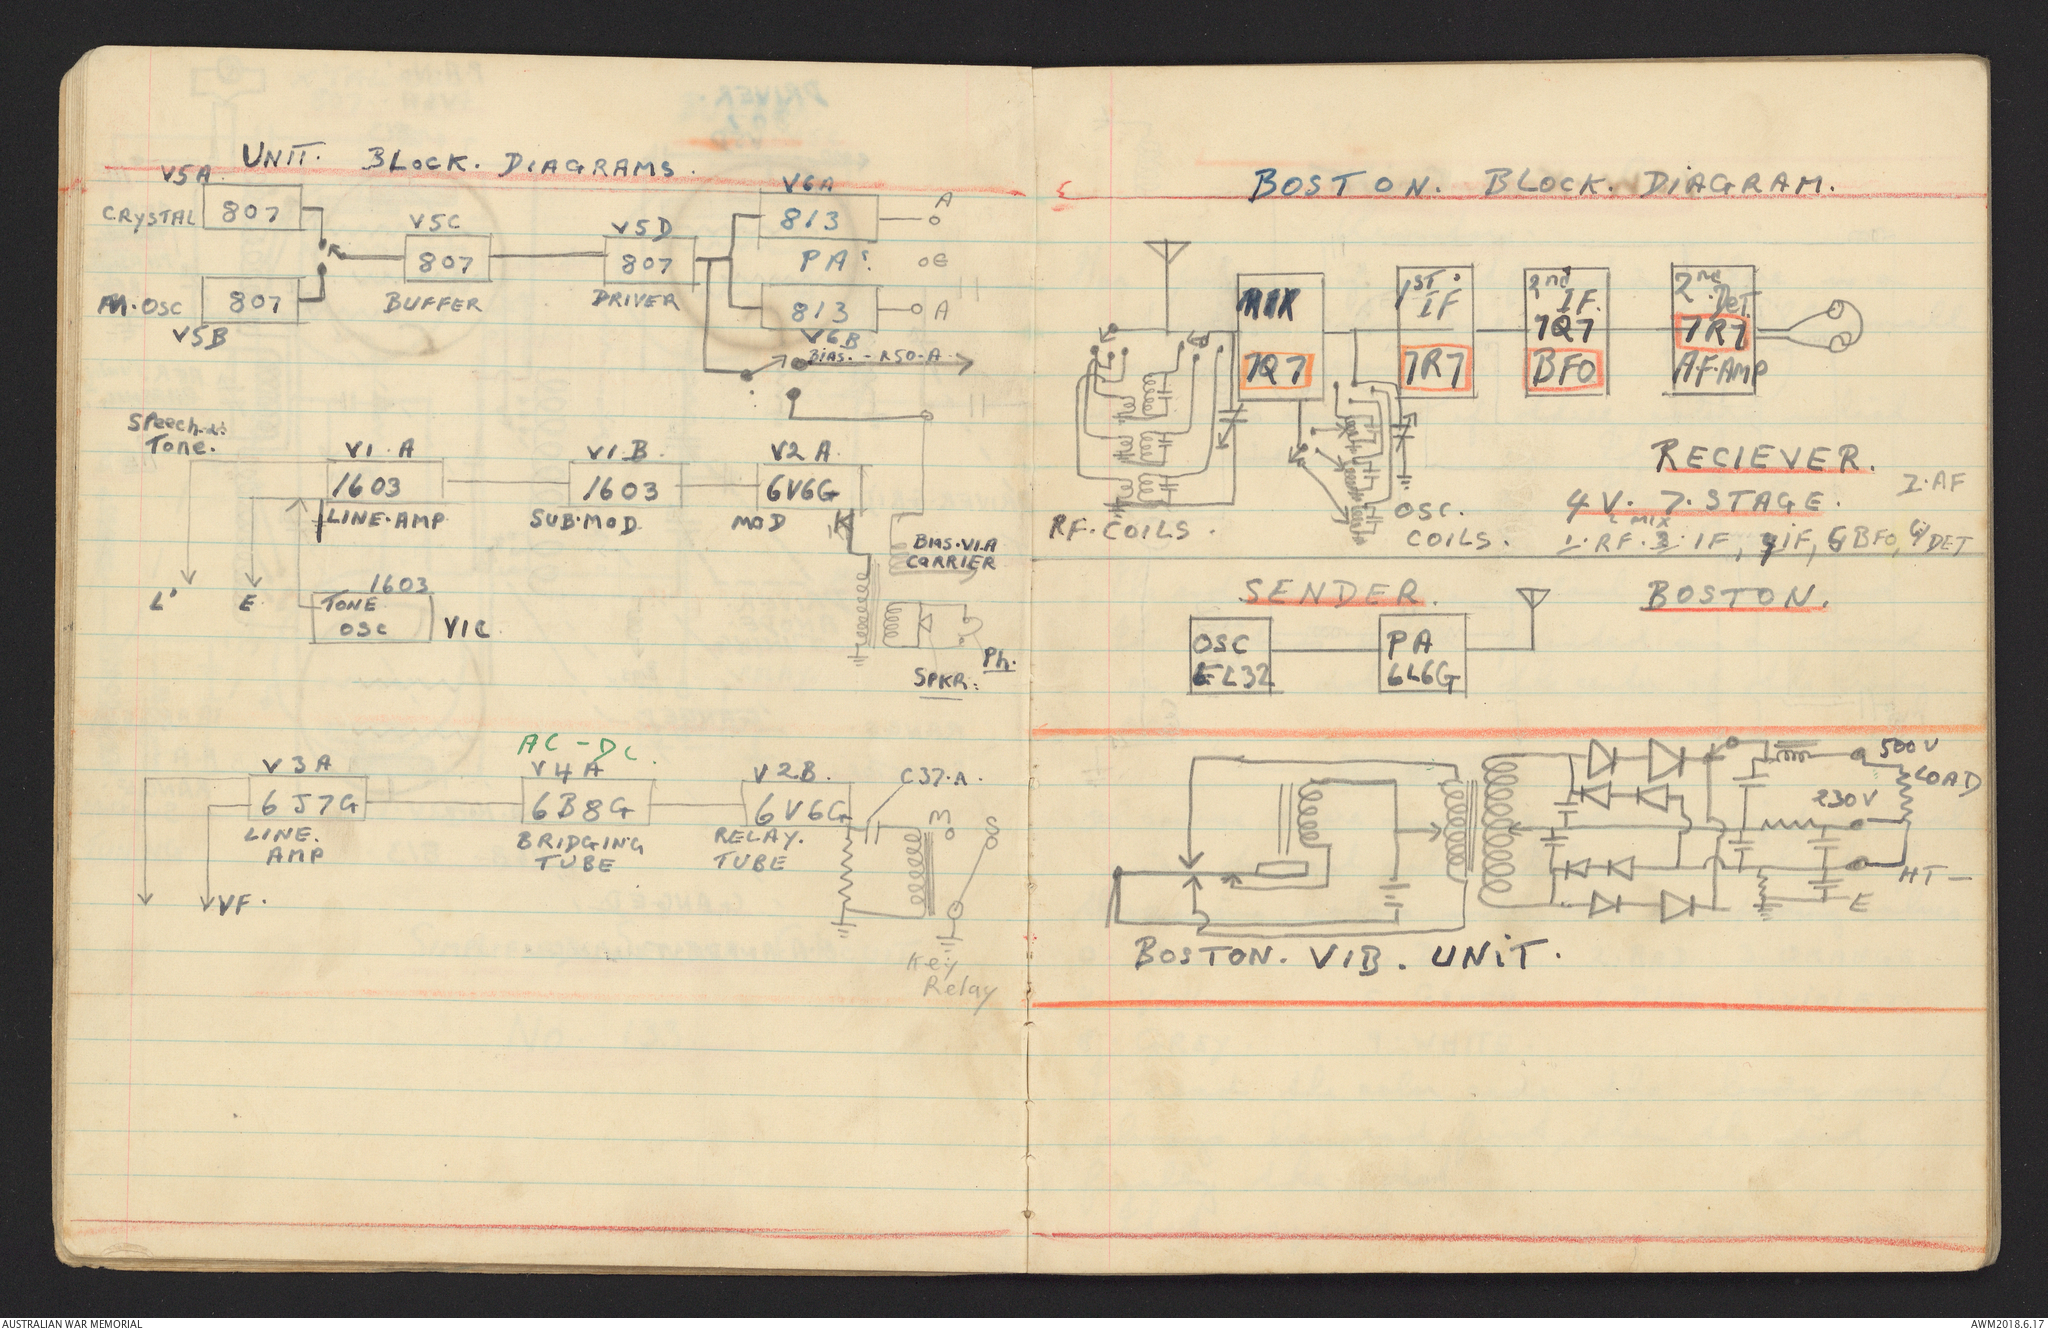 UNIT. BLOCK. DIAGRAMS.
V5A
CRYSTAL
807
M.OSC
807
V5B
V5C
807
BUFFER
V5D
807
DRIVER
V6A
813
PA's.
813
V6B
A
E
A
BIAS. - R50-A.
Speech
Tone.
V1.A
1603
LINE.AMP
V1.B
1603
SUB.MOD.
V2A
6V6G
MOD
L'
E
1603
TONE
OSC
V1C
BIAS.V1.A
CARRIER
SPKR:
Ph.
AC - DC.
V3A
6J7G
LINE.
AMP
V4A
6B8G
BRIDGING
TUBE
V2B.
6V6G
RELAY.
TUBE
C37.A.
M
S
VF.
Key
Relay
BOSTON. BLOCK. DIAGRAM.
MIX
7Q7
1ST
IF
7R7
2nd
IF.
7Q7
BFO
2nd
Det.
7R7
AF.AMP
RF.COILS.
OSC.
COILS.
RECIEVER.
4 V. 7. STAGE.
7.AF
2 MIX
1. RF. 3. IF, 4 IF, 5 BFO, 6 DET
SENDER.
BOSTON.
OSC
EL32
PA
6L6G
500V
LOAD
230V
HT -
E
BOSTON. VIB. UNIT.
AUSTRALIAN WAR MEMORIAL
AWM2018.6.17